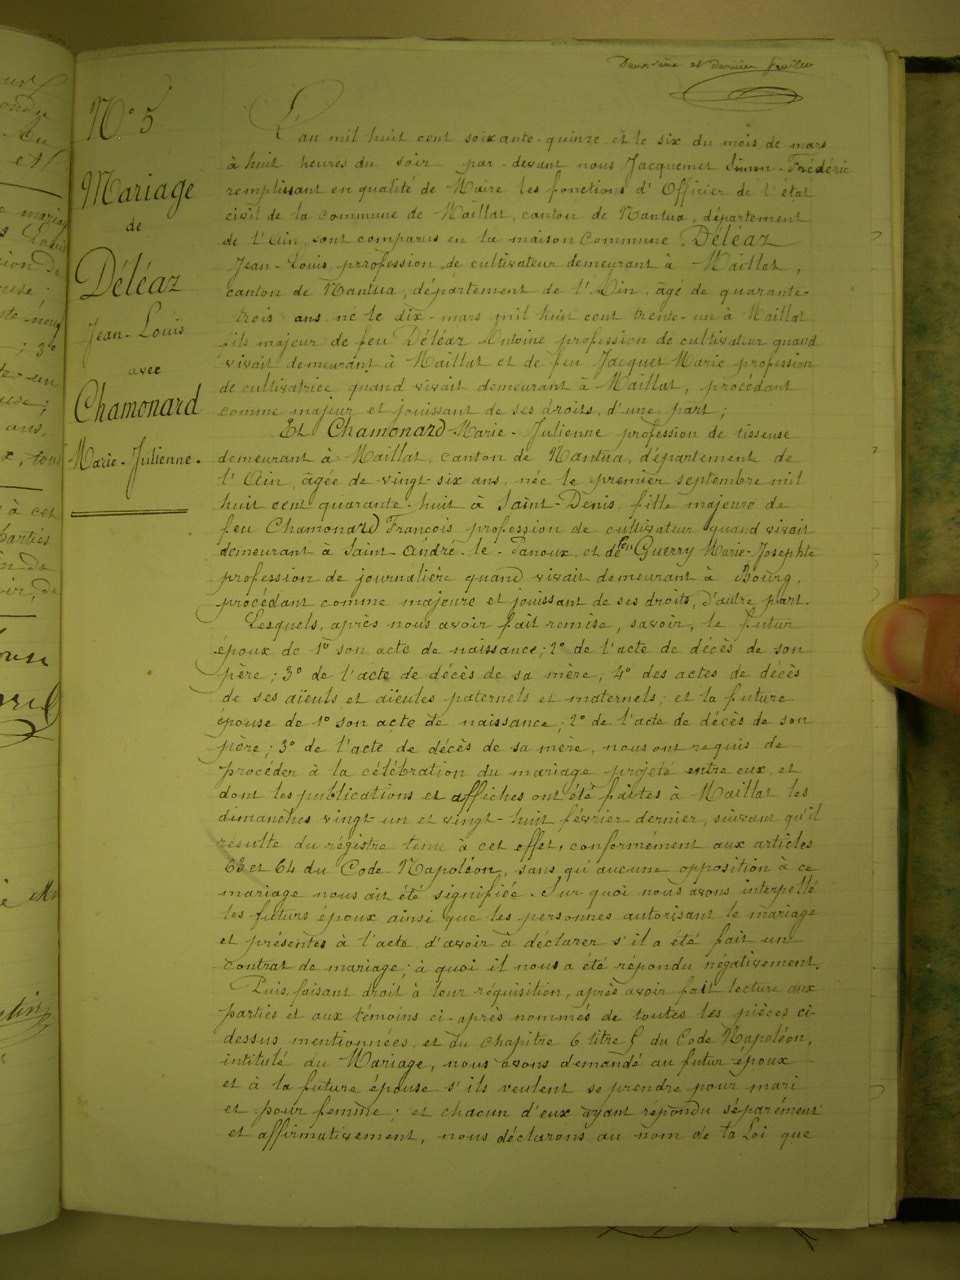 Deuxième et dernier feuillet
N° 5
Mariage
de
Déléaz
Jean-Louis
avec
Chamonard
Marie-Julienne.
L'an mil huit cent soixante-quinze et le six du mois de mars
à huit heures du soir par-devant nous Jacquemet Simon-Frédéric
remplissant en qualité de Maire les fonctions d'Officier de l'état
civil de la commune de Maillat, canton de Nantua, département
de l'Ain, sont comparus en la maison commune Déléaz
Jean-Louis profession de cultivateur demeurant à Maillat,
canton de Nantua, département de l'Ain, âgé de quarante-
trois ans né le dix-mars mil huit cent trente-un à Maillat
fils majeur de feu Déléaz Antoine profession de cultivateur quand
vivait demeurant à Maillat et de feu Jacquet Marie profession
de cultivatrice quand vivait demeurant à Maillat, procédant
comme majeur et jouissant de ses droits, d'une part;
Et Chamonard Marie-Julienne profession de tisseuse
demeurant à Maillat, canton de Nantua, département de
l'Ain, âgée de vingt-six ans, née le premier septembre mil
huit cent quarante-huit à Saint-Denis, fille majeure de
feu Chamonard François profession de cultivateur quand vivait
demeurant à Saint-André-le-Panoux, et de feu Guerry Marie-Josephte
profession de journalière quand vivait demeurant à Bourg,
procédant comme majeure et jouissant de ses droits, d'autre part.
Lesquels, après nous avoir fait remise, savoir, le futur
époux de 1° son acte de naissance; 2° de l'acte de décès de son
père; 3° de l'acte de décès de sa mère, 4° des actes de décès
de ses aïeuls et aïeules paternels et maternels; et la future
épouse de 1° son acte de naissance; 2° de l'acte de décès de son
père; 3° de l'acte de décès de sa mère, nous ont requis de
procéder à la célébration du mariage projeté entre eux, et
dont les publications et affiches ont été faites à Maillat les
dimanches vingt-un et vingt-huit février dernier, suivant qu'il
résulte du régistre tenu à cet effet, conformément aux articles
63 et 64 du Code Napoléon, sans qu'aucune opposition à ce
mariage nous ait été signifiée. Sur quoi nous avons interpellé
les futurs époux ainsi que les personnes autorisant le mariage
et présentes à l'acte d'avoir à déclarer s'il a été fait un
contrat de mariage; à quoi il nous a été répondu négativement.
Puis, faisant droit à leur réquisition, après avoir fait lecture aux
parties et aux témoins ci-après nommés de toutes les pièces ci-
dessus mentionnées, et du chapitre 6 titre 5 du Code Napoléon,
intitulé du Mariage, nous avons demandé au futur époux
et à la future épouse s'ils veulent se prendre pour mari
et pour femme; et chacun d'eux ayant répondu séparément
et affirmativement, nous déclarons au nom de la Loi que